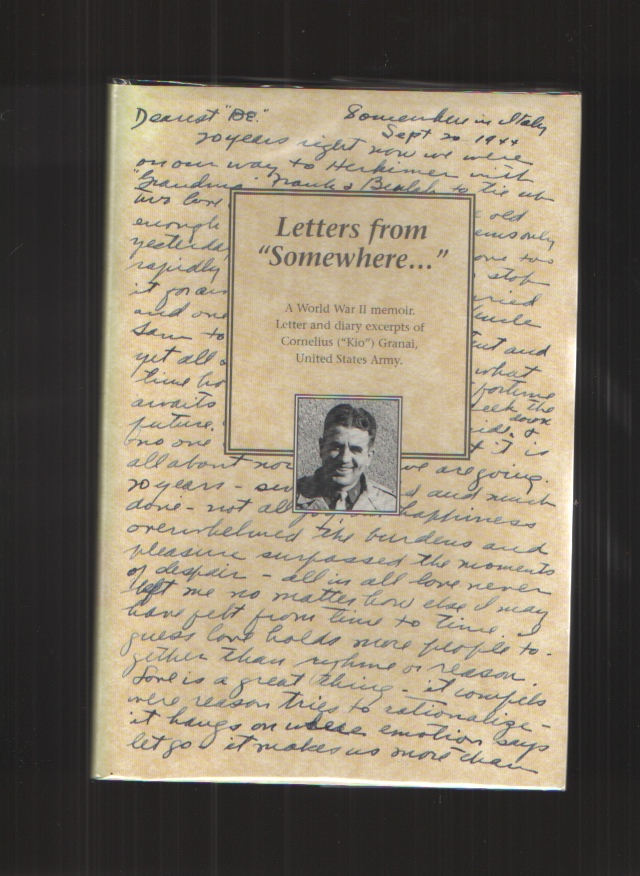 Dearest "De."
Somewhere in Italy
Sept 20 1944
20 years right now we were
on our way to Herkimer with
"Grandma" Frank & to tie up
two love old
enough
yesterday one two
rapidly stop
it
and one Uncle
Sam to and
yet all what
time fortune
awaits seek the
down
future. &
no one it is
all about now we are going.
20 years - and much
done - not all joy happiness
overwhelmed the burdens and
pleasure surpassed the moments
of despair - all in all love never
left me no matter how else I may
have felt from time to time. I
guess love holds more people to-
gether than rhyme or reason.
Love is a great thing - it compels
were reason tries to rationalize -
it hangs on where emotion says
let go it makes us more than
Letters from
"Somewhere..."
A World War II memoir.
Letter and diary excerpts of
Cornelius ("Kio") Granai,
United States Army.